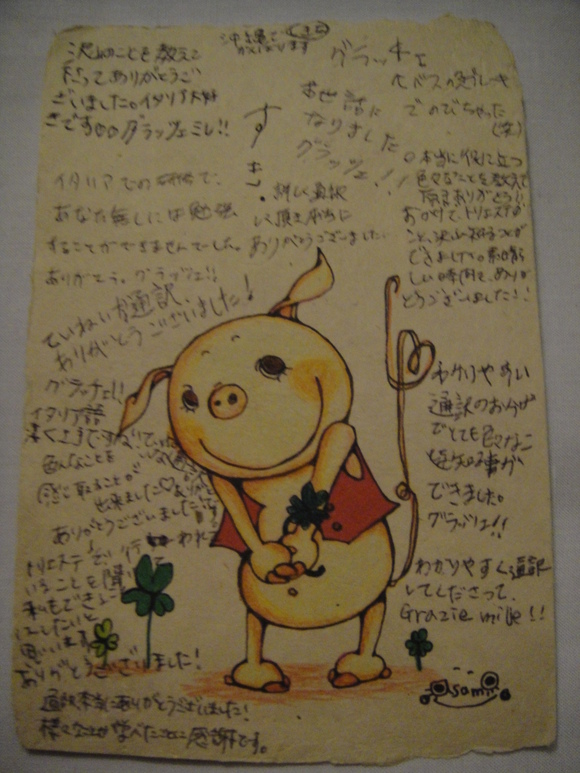 沢山のことを教えて
下さってありがとうご
ざいました。イタリア大好
きです グラッツェミレ!!
沖縄で
がんばります
グラッチェ
お世話に
なりました
グラッツェ!!
でのびちゃった
(笑)
イタリアでの研修で、
あなた無しには勉強
することができませんでした。
ありがとう。グラッツェ!!
詳しい通訳
ありがとうございました
本当に役に立つ
色々なことを教えて
頂きありがとう!!
おかげで、トリエステの
こと、沢山知ることが
できました。素晴ら
しい時間を、ありが
とうございました!!
ていねいな通訳、
ありがとうございました!
グラッチェ!!
イタリア語
色んなことを
感じ取ることが
出来ました♡
ありがとうございました
トリエステで行われて
いることを聞いて
私もできること
したいと
思います
ありがとうございました!
通訳本当にありがとうございました!
様々なことが学べたことに感謝です。
わかりやすい
通訳のおかげ
でとても色々なこ
とを知る事が
できました。
グラッツェ!!
わかりやすく通訳
してくださって、
Grazie mille!!